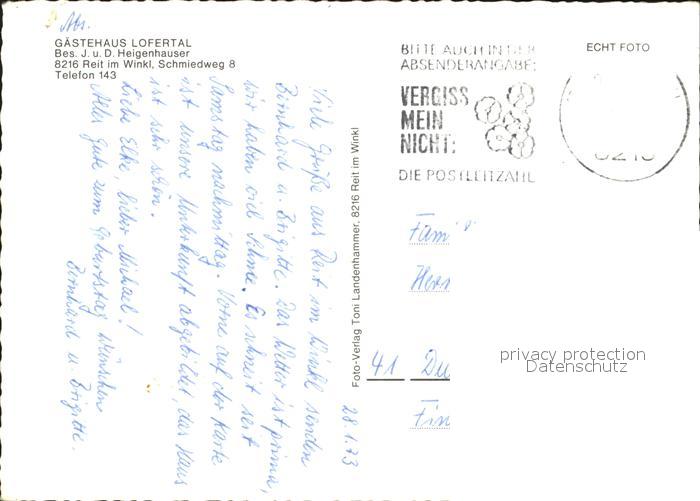 Abs.
GÄSTEHAUS LOFERTAL
Bes. J. u. D. Heigenhauser
8216 Reit im Winkl, Schmiedweg 8
Telefon 143
Viele Grüße aus Reit im Winkl senden
Bernhard u. Brigitte. Das Wetter ist prima,
wir haben viel Schnee. Es schneit seit
Samstag nachmittag. Vorne auf der Karte
ist unsere Unterkunft abgebildet, das Haus
ist sehr schön.
Liebe Elke, lieber Michael!
Alles Gute zum Geburtstag wünschen
Bernhard u. Brigitte.
Foto-Verlag Toni Landenhammer, 8216 Reit im Winkl
28.1.73
BITTE AUCH IN DER
ABSENDERANGABE:
VERGISS
MEIN
NICHT:
DIE POSTLEITZAHL
ECHT FOTO
8216
Fam
Herr
41 Du
Fin
privacy protection
Datenschutz